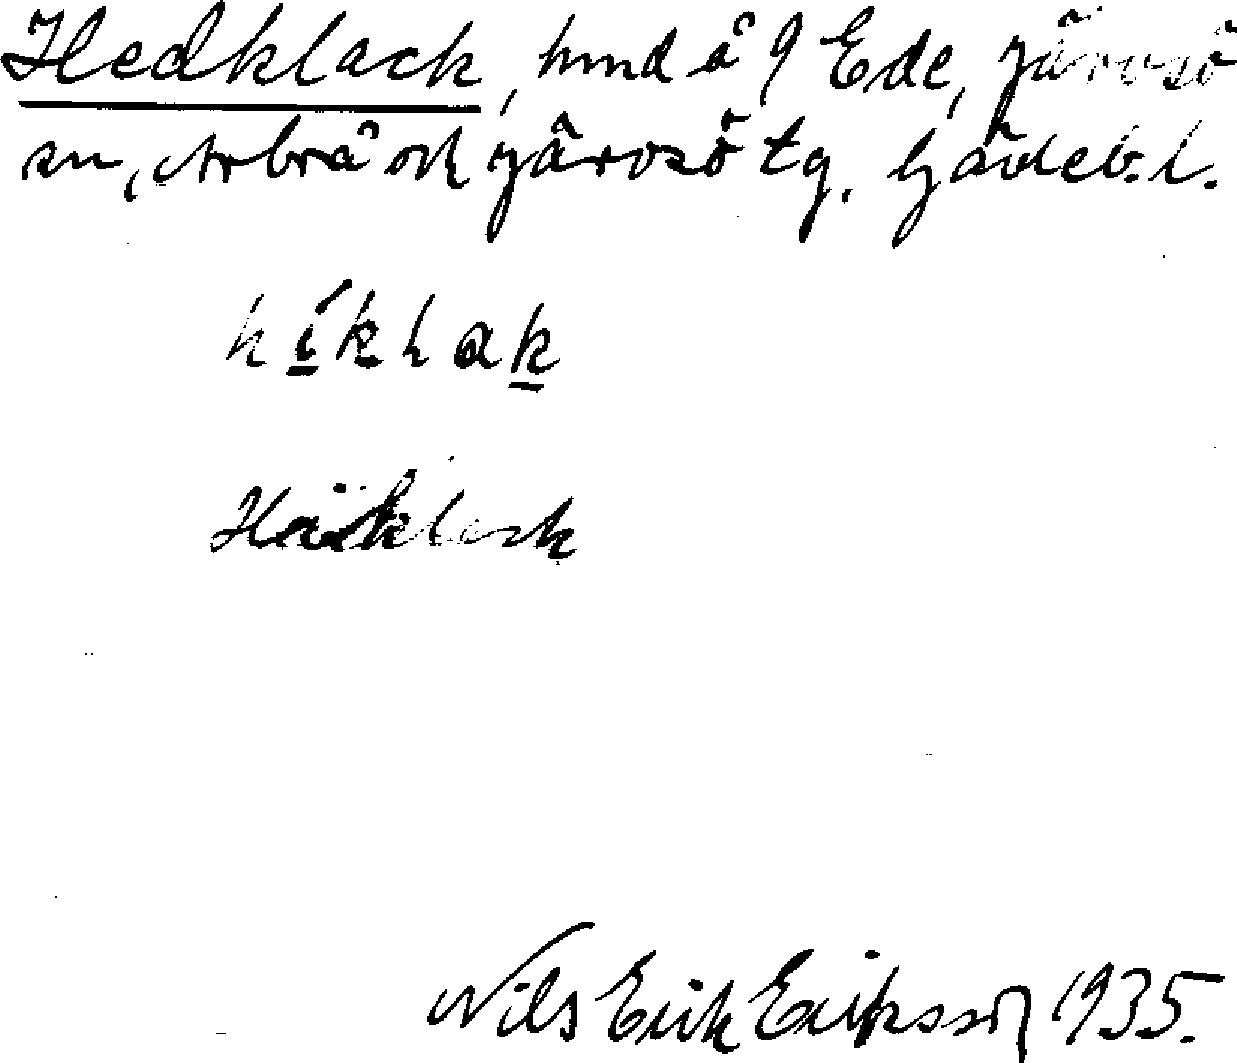 Hedklack, hmd å 9 Ede, Järvsö
sn, Arbrå och Järvsö tg. Gävleb. l.
híklak
Häcklack
Nils Erik Eriksson 1935.